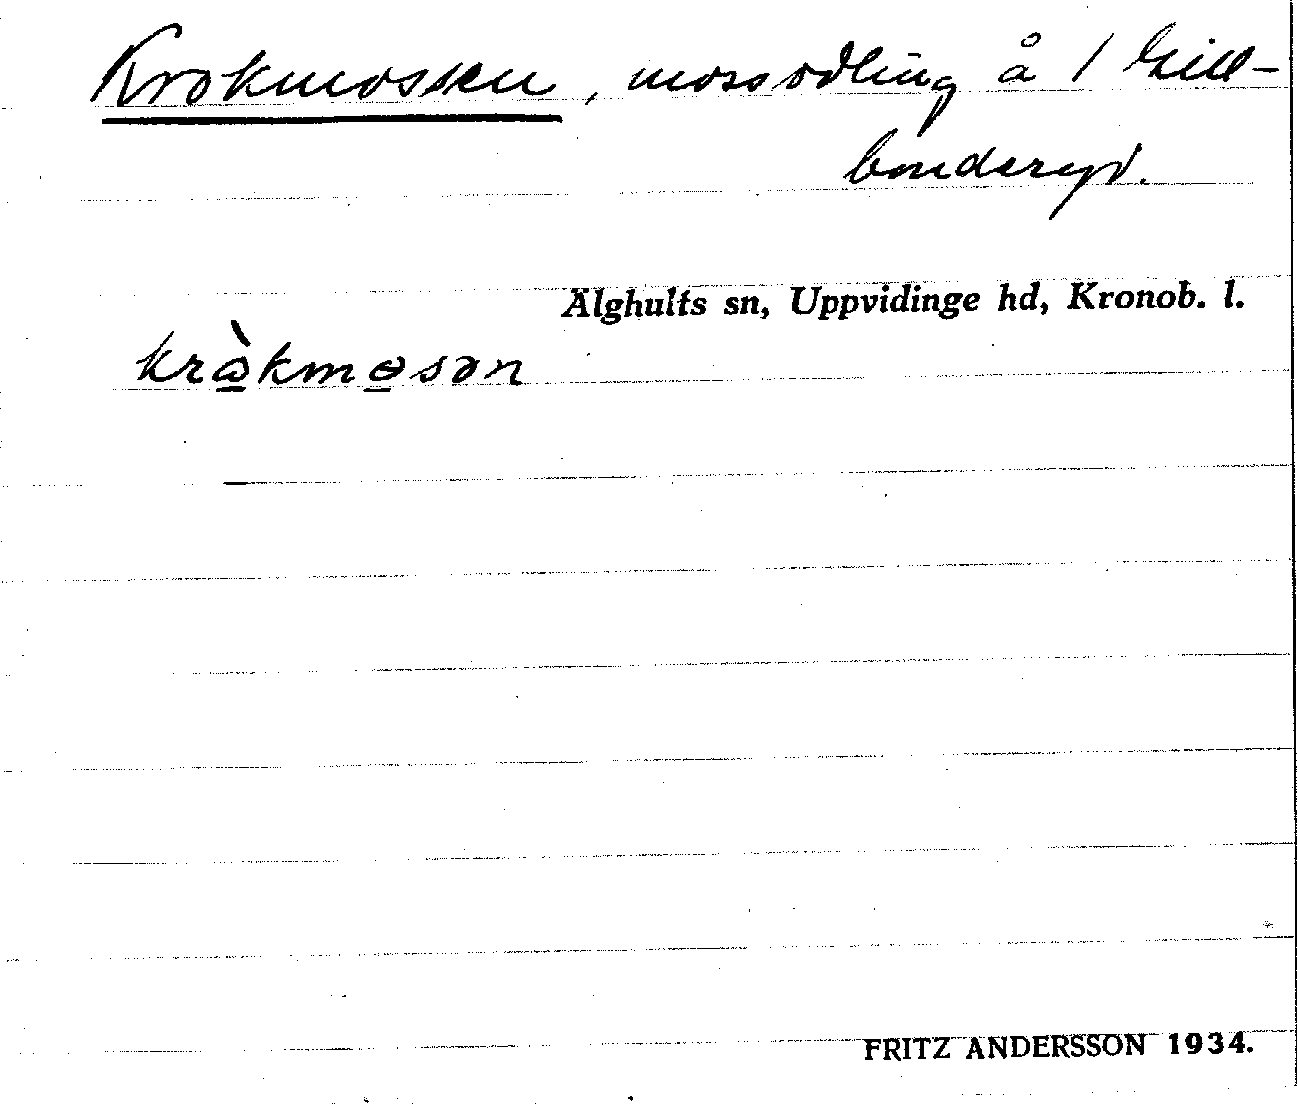 Krokmossen, mossodling å 1 Lill-
bonderyd.
Älghults sn, Uppvidinge hd, Kronob. l.
kròkmosən
FRITZ ANDERSSON 1934.